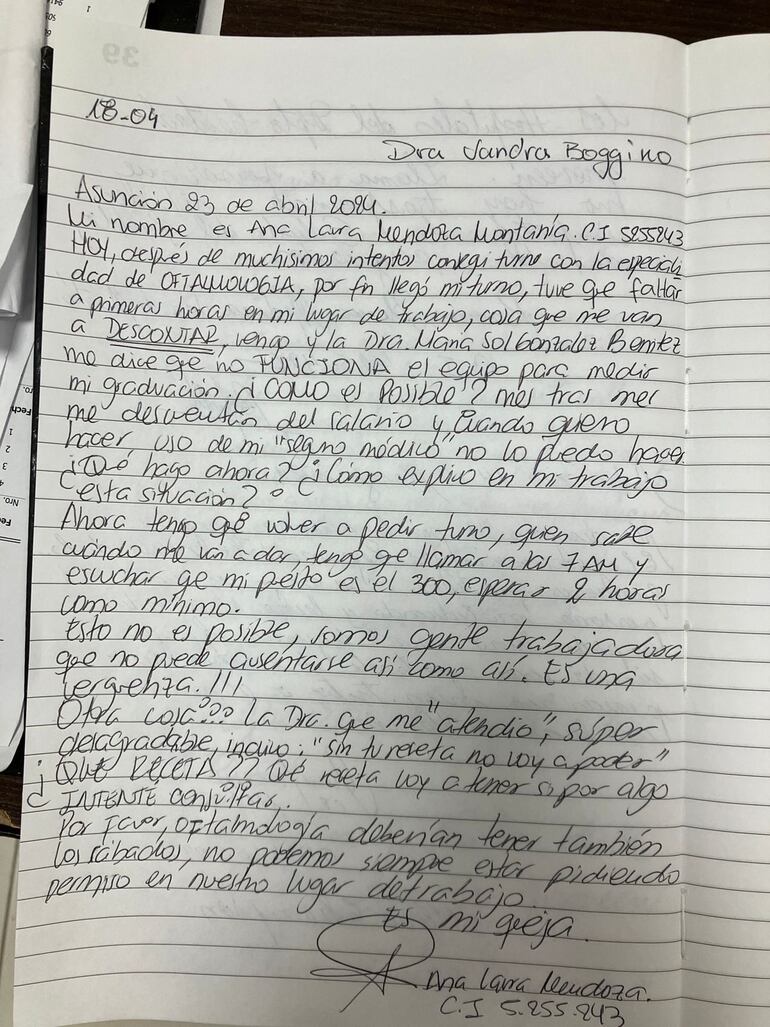 39
18-04
Dra Sandra Boggino
Asunción 23 de abril 2024.
Mi nombre es Ana Laura Mendoza Montanía. C.I 5255243
HOY, después de muchisimos intentos conseguí turno con la especiali
dad de OFTALMOLOGIA, por fin llegó mi turno, tuve que faltar
a primeras horas en mi lugar de trabajo, cosa que me van
a DESCONTAR, vengo y la Dra. Maria Sol Gonzalez Benitez
me dice que no FUNCIONA el equipo para medir
mi graduación. ¿COMO es POSIBLE? mes tras mes
me descuentan del salario y cuando quiero
hacer uso de mi "seguro médico" no lo puedo hacer.
¿Qué hago ahora? ¿Cómo explico en mi trabajo
esta situación?
Ahora tengo que volver a pedir turno, quien sabe
cuándo me van a dar, tengo que llamar a las 7 AM y
escuchar que mi puesto es el 300, esperar 2 horas
como mínimo.
Esto no es posible, somos gente trabajadora
que no puede ausentarse así como así. Es una
verguenza.!!!
Otra cosa??? la Dra. que me "atendio", súper
desagradable, incluso: "sin tu reseta no voy a poder"
¿QUE RECETA?? Qué reseta voy a tener si por algo
INTENTE consultar.
Por favor, oftalmología deberían tener también
los sábados, no podemos siempre estar pidiendo
permiso en nuestro lugar de trabajo.
Es mi queja.
Ana Laura Mendoza.
C.I 5.255.243